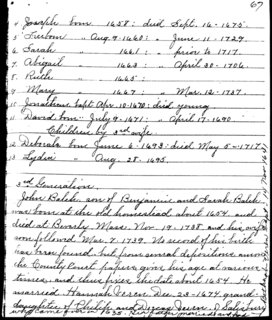 67
4 Joseph born 1658: died Sept. 16-1675.
5 Freborn " Aug. 9-1660: " June 11-1729.
6 Sarah " 1661: " prior to 1717.
7 Abigail " 1663: " April 30-1706.
8 Ruth " 1665:
9 Mary " 1667: " Mar. 12-1737.
10 Jonathan bapt. Apr. 10-1670: died young.
11 David born July 9-1671: " April 17-1690.
Children by 3rd wife
12 Deborah born June 6-1693: died May 5-1717.
13 Lydia " Aug. 28-1695.
3rd Generation.
John Balch, son of Benjamin and Sarah Balch
was born at the old homestead about 1654, and
died at Beverly Mass. Nov. 19-1738 and his
followed Mar. 7-1739. No record of his birth
has been found, but from several depositions among
the County Court papers, gives his age at various
times, and thus fixes the date about 1654. He
married Hannah Veren Dec. 23-1674 grand
daughter of Philip and Dorcas Veren of Salisbury